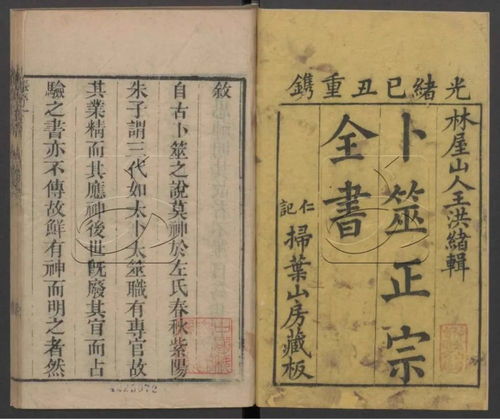 光緒已丑重鐫
林屋山人王洪緒輯
卜筮正宗
全書
仁記
掃葉山房藏板
敘
自古卜筮之說莫神於左氏春秋紫陽
朱子謂三代如太卜太筮職有專官故
其業精而其應神後世既廢其官而占
驗之書亦不傳故鮮有神而明之者然